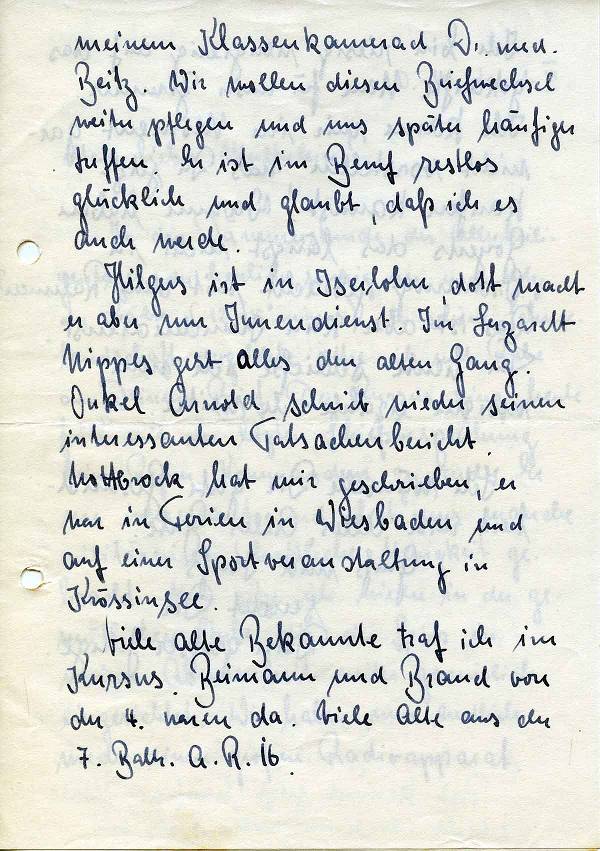 meinem Klassenkamerad Dr. med.
Beitz. Wir wollen diesen Briefwechsel
weiter pflegen und uns später häufiger
treffen. Er ist im Beruf restlos
glücklich und glaubt, daß ich es
auch werde.
Hilgers ist in Iserlohn, dort macht
er aber nur Innendienst. Im Lazarett
Nippes geht alles den alten Gang.
Onkel Arnold schrieb wieder seinen
interessanten Tatsachenbericht.
Nottbrock hat mir geschrieben, er
war in Ferien in Wiesbaden und
auf einer Sportveranstaltung in
Krössinsee.
Viele alte Bekannte traf ich im
Kursus. Beimann und Brand von
der 4. waren da. Viele Alte aus der
7. Battr. A.R. 16.